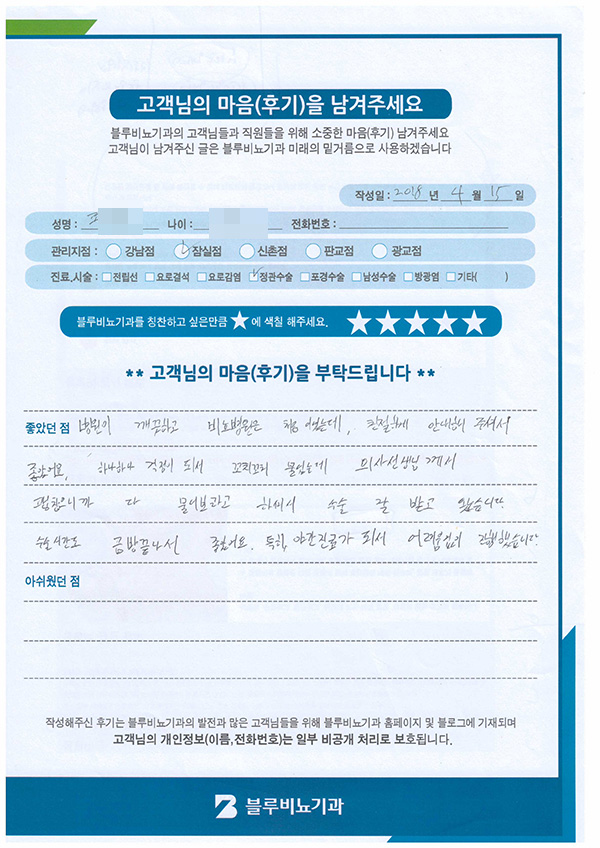 고객님의 마음(후기)을 남겨주세요
블루비뇨기과의 고객님들과 직원들을 위해 소중한 마음(후기) 남겨주세요
고객님이 남겨주신 글은 블루비뇨기과 미래의 밑거름으로 사용하겠습니다
작성일 : 2018 년 4 월 15 일
성명 : 나이 : 전화번호 :
관리지점 : 강남점 잠실점 신촌점 판교점 광교점
진료.시술 : 전립선 요로결석 요로감염 정관수술 포경수술 남성수술 방광염 기타( )
블루비뇨기과를 칭찬하고 싶은만큼 ★에 색칠 해주세요. ★★★★★
** 고객님의 마음(후기)을 부탁드립니다 **
좋았던 점 병원이 깨끗하고 비뇨병원은 처음 이었는데, 친절하게 안내해 주셔서
좋았어요. 하나하나 걱정이 되서 꼬치꼬치 물었는데 의사선생님께서
괜찮으니까 다 물어보라고 하셔서 수술 잘 받고 왔습니다.
수술시간도 금방끝나서 좋았어요. 특히, 야간진료가 되서 어려움없이 진행했습니다.
아쉬웠던 점
작성해주신 후기는 블루비뇨기과의 발전과 많은 고객님들을 위해 블루비뇨기과 홈페이지 및 블로그에 기재되며
고객님의 개인정보(이름,전화번호)는 일부 비공개 처리로 보호됩니다.
블루비뇨기과